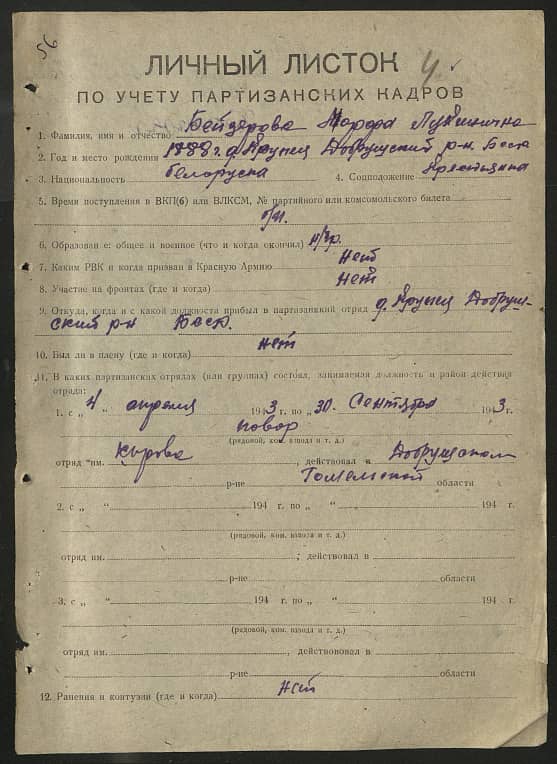 56
ЛИЧНЫЙ ЛИСТОК 4
ПО УЧЕТУ ПАРТИЗАНСКИХ КАДРОВ
1. Фамилия, имя и отчество Бейзерова Марфа Лукинична
2. Год и место рождения 1888 г. д. Крупец Добрушский р-н Бсср
3. Национальность белоруска 4. Соцположение Крестьянка
5. Время поступления в ВКП(б) или ВЛКСМ, № партийного или комсомольского билета
б/п.
6. Образование: общее и военное (что и когда окончил) н/гр.
7. Каким РВК и когда призван в Красную Армию нет
8. Участие на фронтах (где и когда) нет
9. Откуда, когда и с какой должности прибыл в партизанский отряд д. Крупец Добруш-
ский р-н Бсср.
10. Был ли в плену (где и когда) нет
11. В каких партизанских отрядах (или группах) состоял, занимаемая должность и район действия
отряда:
1. с „ 4 „ апреля 1943 г. по „ 30. Сентября 1943 г.
повар
(рядовой, ком. взвода и т. д.)
отряд им. Кирова, действовал в Добрушском
р-не Гомельской области
2. с „ “ 194 г. по „ “ 194 г.
(рядовой, ком. взвода и т. д.)
отряд им. ; действовал в
р-не области
3. с „ “ 194 г. по „ “ 194 г.
(рядовой, ком. взвода и т. д.)
отряд им. , действововал в
р-не области
12. Ранения и контузии (где и когда) нет